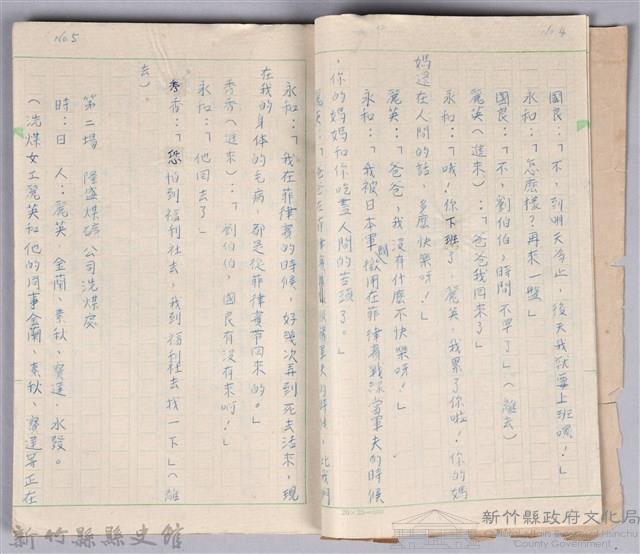 No.4
國民：「不，到明天為止，後天我就要上班嘿！」
永和：「怎麼樣？再來一盤」
國民：「不，劉伯伯，時間不早了」（離去）
麗英（進來）：「爸爸我回來了」
永和：「哦！你下班了，麗英，我累了你啦！你的媽
媽還在人間的話，多麼快樂呀！」
麗英：「爸爸，我沒有什麼不快樂呀！」
永和：「我被日本軍徵用在菲律賓戰線當軍夫的時候
，你的媽媽和你吃盡人間的苦頭了。」
麗英：「爸爸在菲律賓
No.5
永和：「我在菲律賓的時候，好幾次弄到死去活來，現
在我的身体的毛病，都是從菲律賓帶回來的。」
秀香（進來）：「劉伯伯，國民有沒有來啊！」
永和：「他回去了」
秀香：「恐怕到福利社去，我到福利社去找一下」（離
去）
第二場 隆盛煤礦公司洗煤處
時：日 人：麗英、金蘭、素秋、寶蓮、永發。
（洗煤女工麗英和他的同事金蘭、素秋、寶蓮等正在
新竹縣縣史館
新竹縣政府文化局
Cultural Affairs Bureau of Hsinchu
County Government